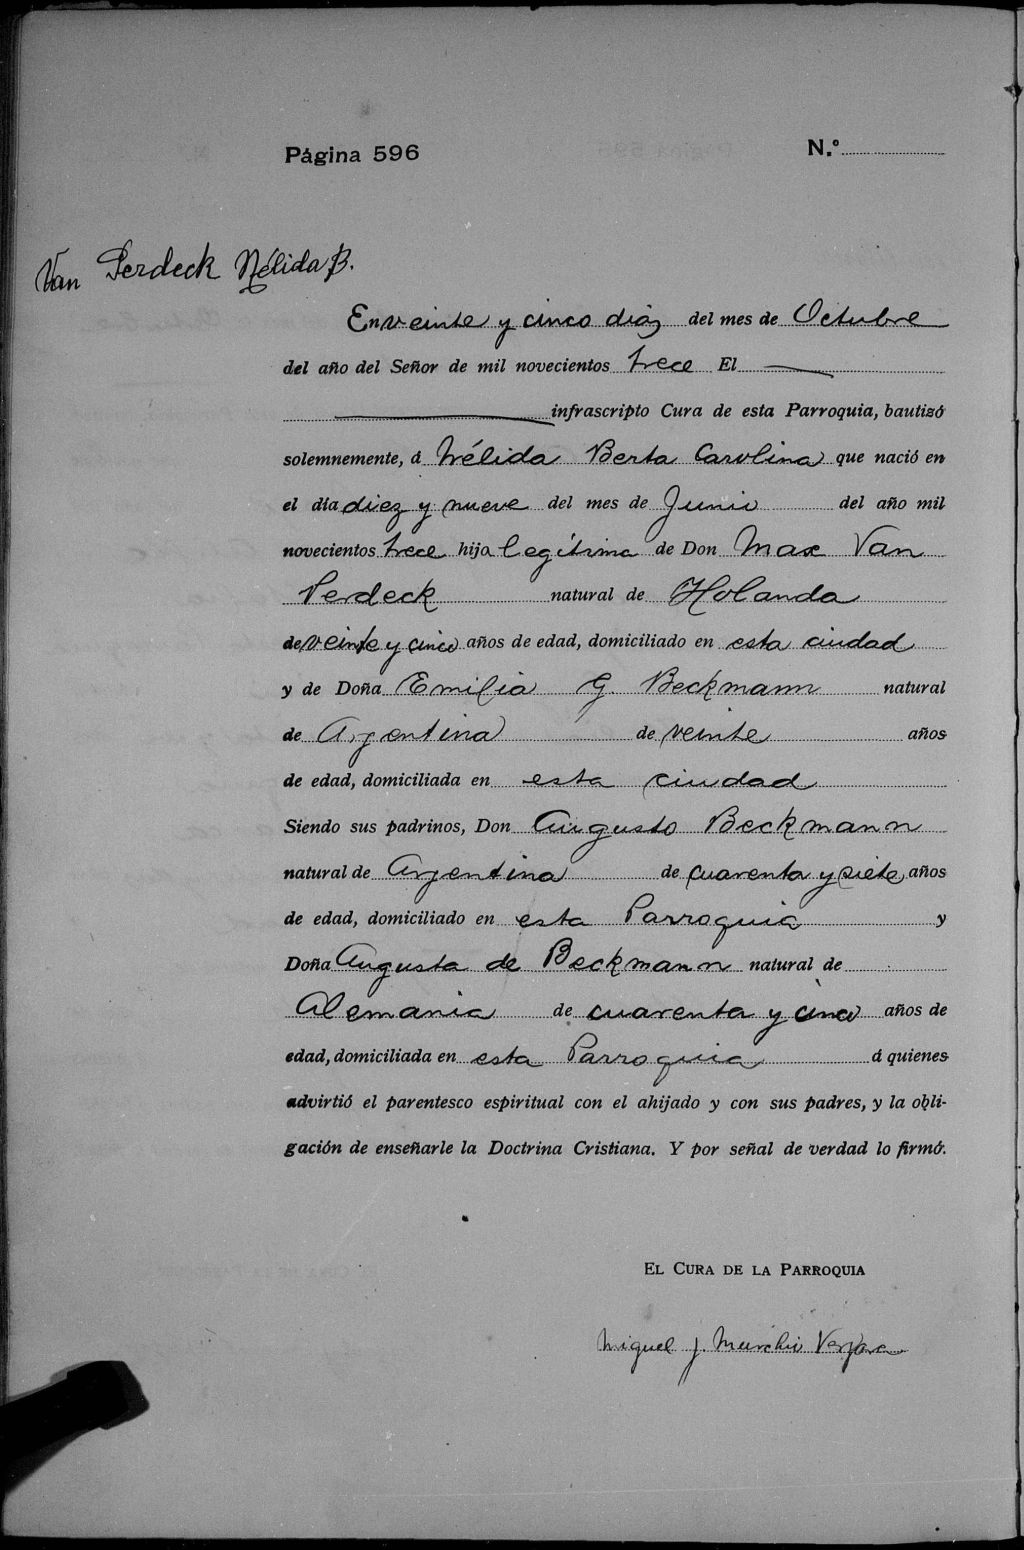 Página 596
N.º
Van Perdeck Nélida B.
En veinte y cinco días del mes de Octubre
del año del Señor de mil novecientos trece El
infrascripto Cura de esta Parroquia, bautizó
solemnemente, á Nélida Berta Carolina que nació en
el día diez y nueve del mes de Junio del año mil
novecientos trece hija legítima de Don Max Van
Perdeck natural de Holanda
de veinte y cinco años de edad, domiciliado en esta ciudad
y de Doña Emilia G. Beckmann natural
de Argentina de veinte años
de edad, domiciliada en esta ciudad
Siendo sus padrinos, Don Augusto Beckmann
natural de Argentina de cuarenta y siete años
de edad, domiciliado en esta Parroquia y
Doña Augusta de Beckmann natural de
Alemania de cuarenta y cinco años de
edad, domiciliada en esta Parroquia á quienes
advirtió el parentesco espiritual con el ahijado y con sus padres, y la obli-
gación de enseñarle la Doctrina Cristiana. Y por señal de verdad lo firmó.
EL CURA DE LA PARROQUIA
Miguel J.